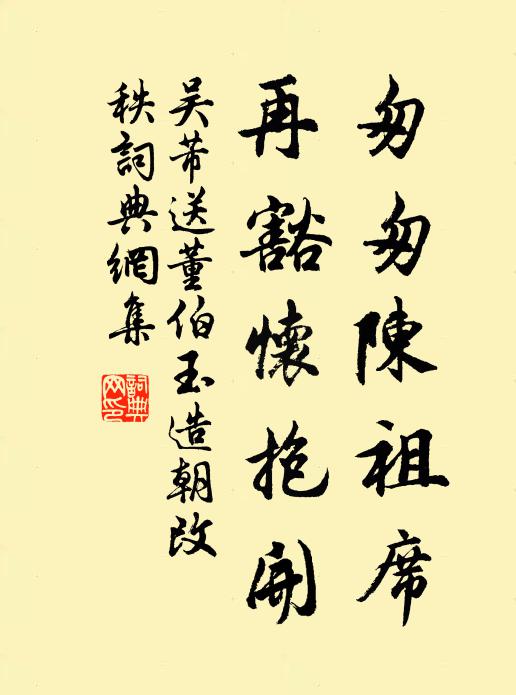 匆匆陳祖席
再豁懷抱開
吴芾送董伯玉造朝改
秩詞典網集
詞典
网印